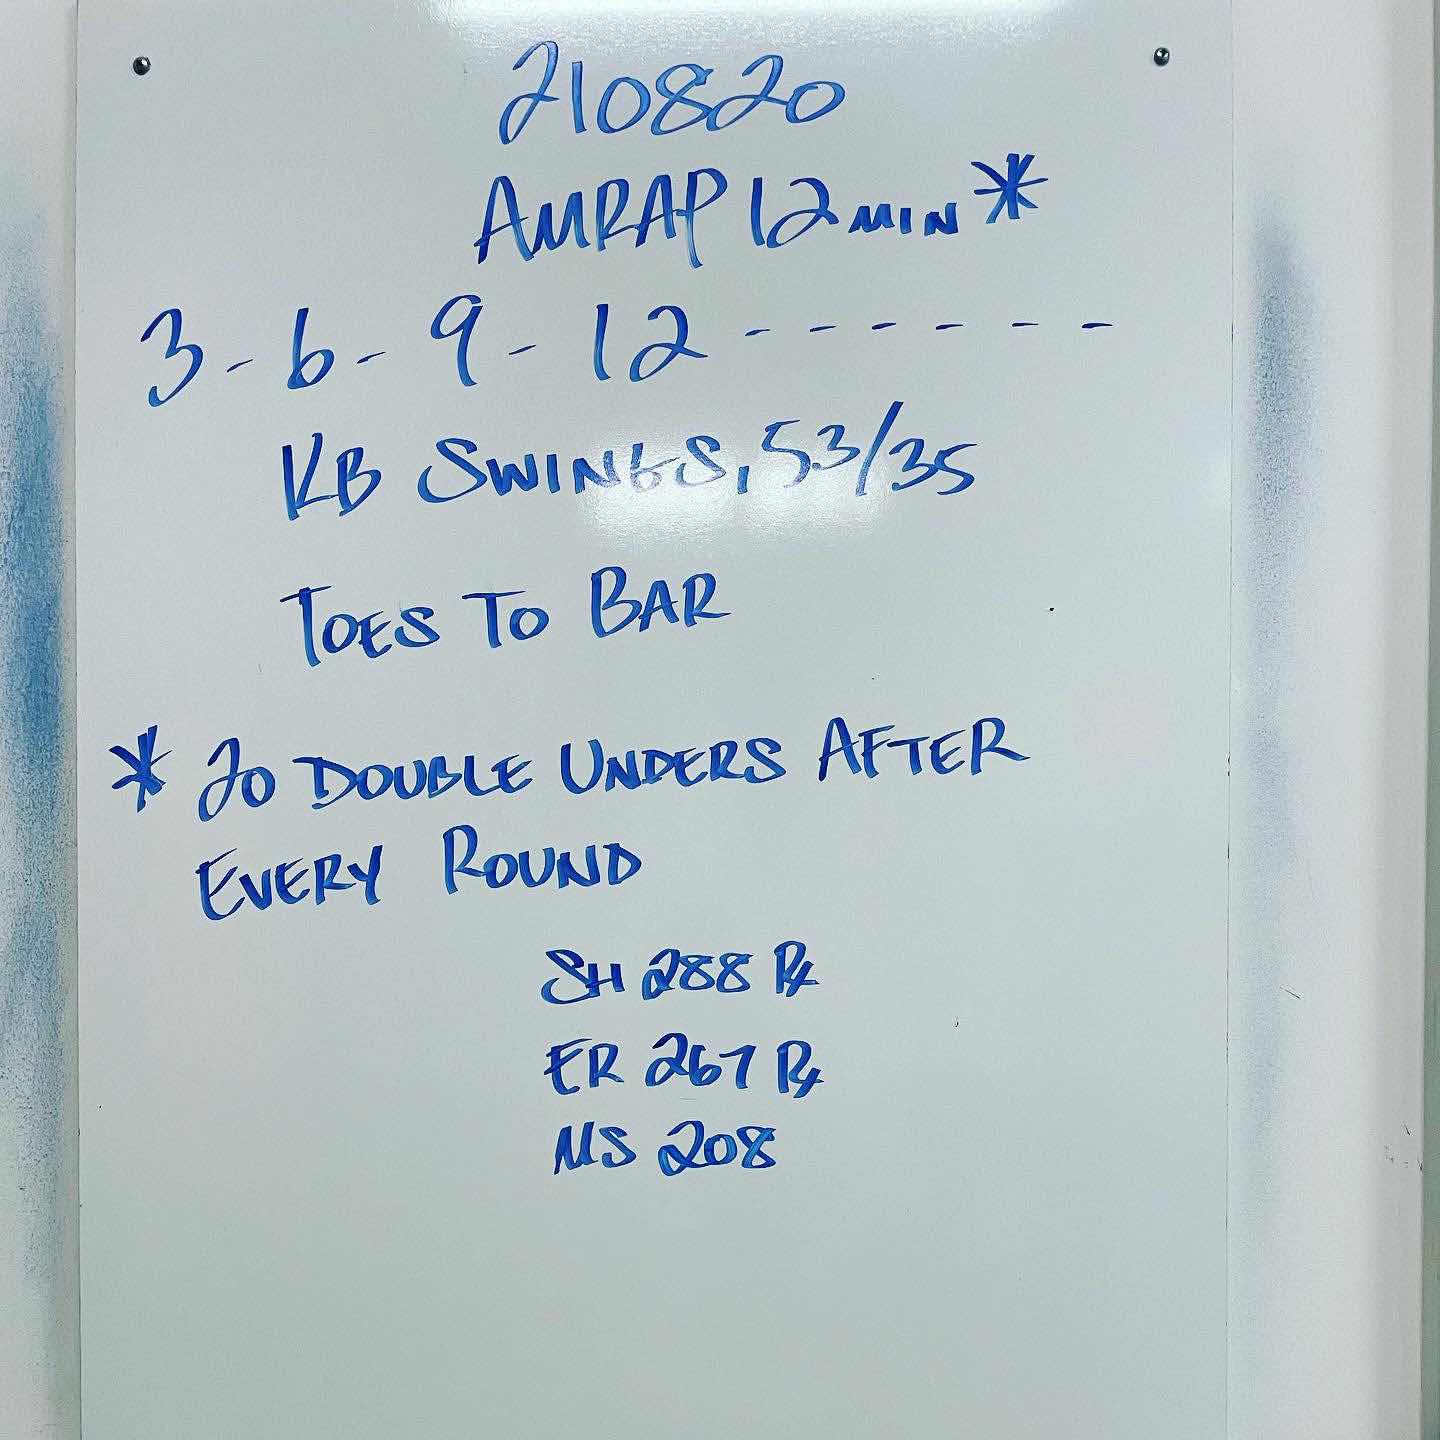 210820
AMRAP 12 MIN *
3 - 6 - 9 - 12 - - - - - -
KB SWINGS, 53/35
TOES TO BAR
* 20 DOUBLE UNDERS AFTER
EVERY ROUND
SH 288 Rx
ER 267 Rx
MS 208